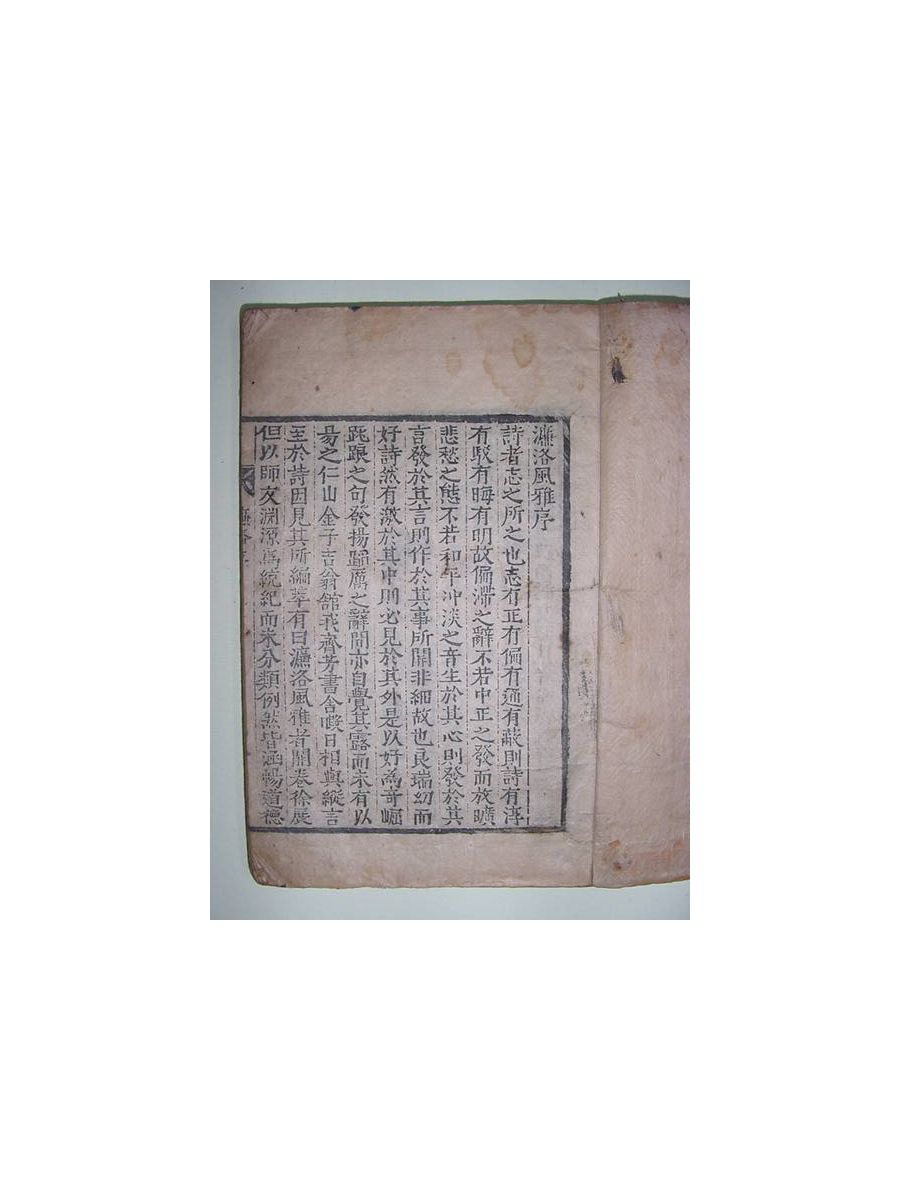 濂洛風雅序
詩者志之所之也志有正有偏有通有蔽則詩有淳
有駁有晦有明故偏滯之辭不若中正之發而放曠
悲愁之態不若和平沖淡之音生於其心則發於其
言發於其言則作於其事所關非細故也良瑞幼而
好詩然有激於其中則必見於其外是以好為奇崛
跅踉之句發揚蹈厲之辭間亦自覺其露而未有以
易之仁山金子吉翁館我齊芳書舍暇日相與縱言
至於詩因見其所編萃有曰濂洛風雅者開卷徐展
但以師友淵源爲統紀而未分類例然皆涵暢道德